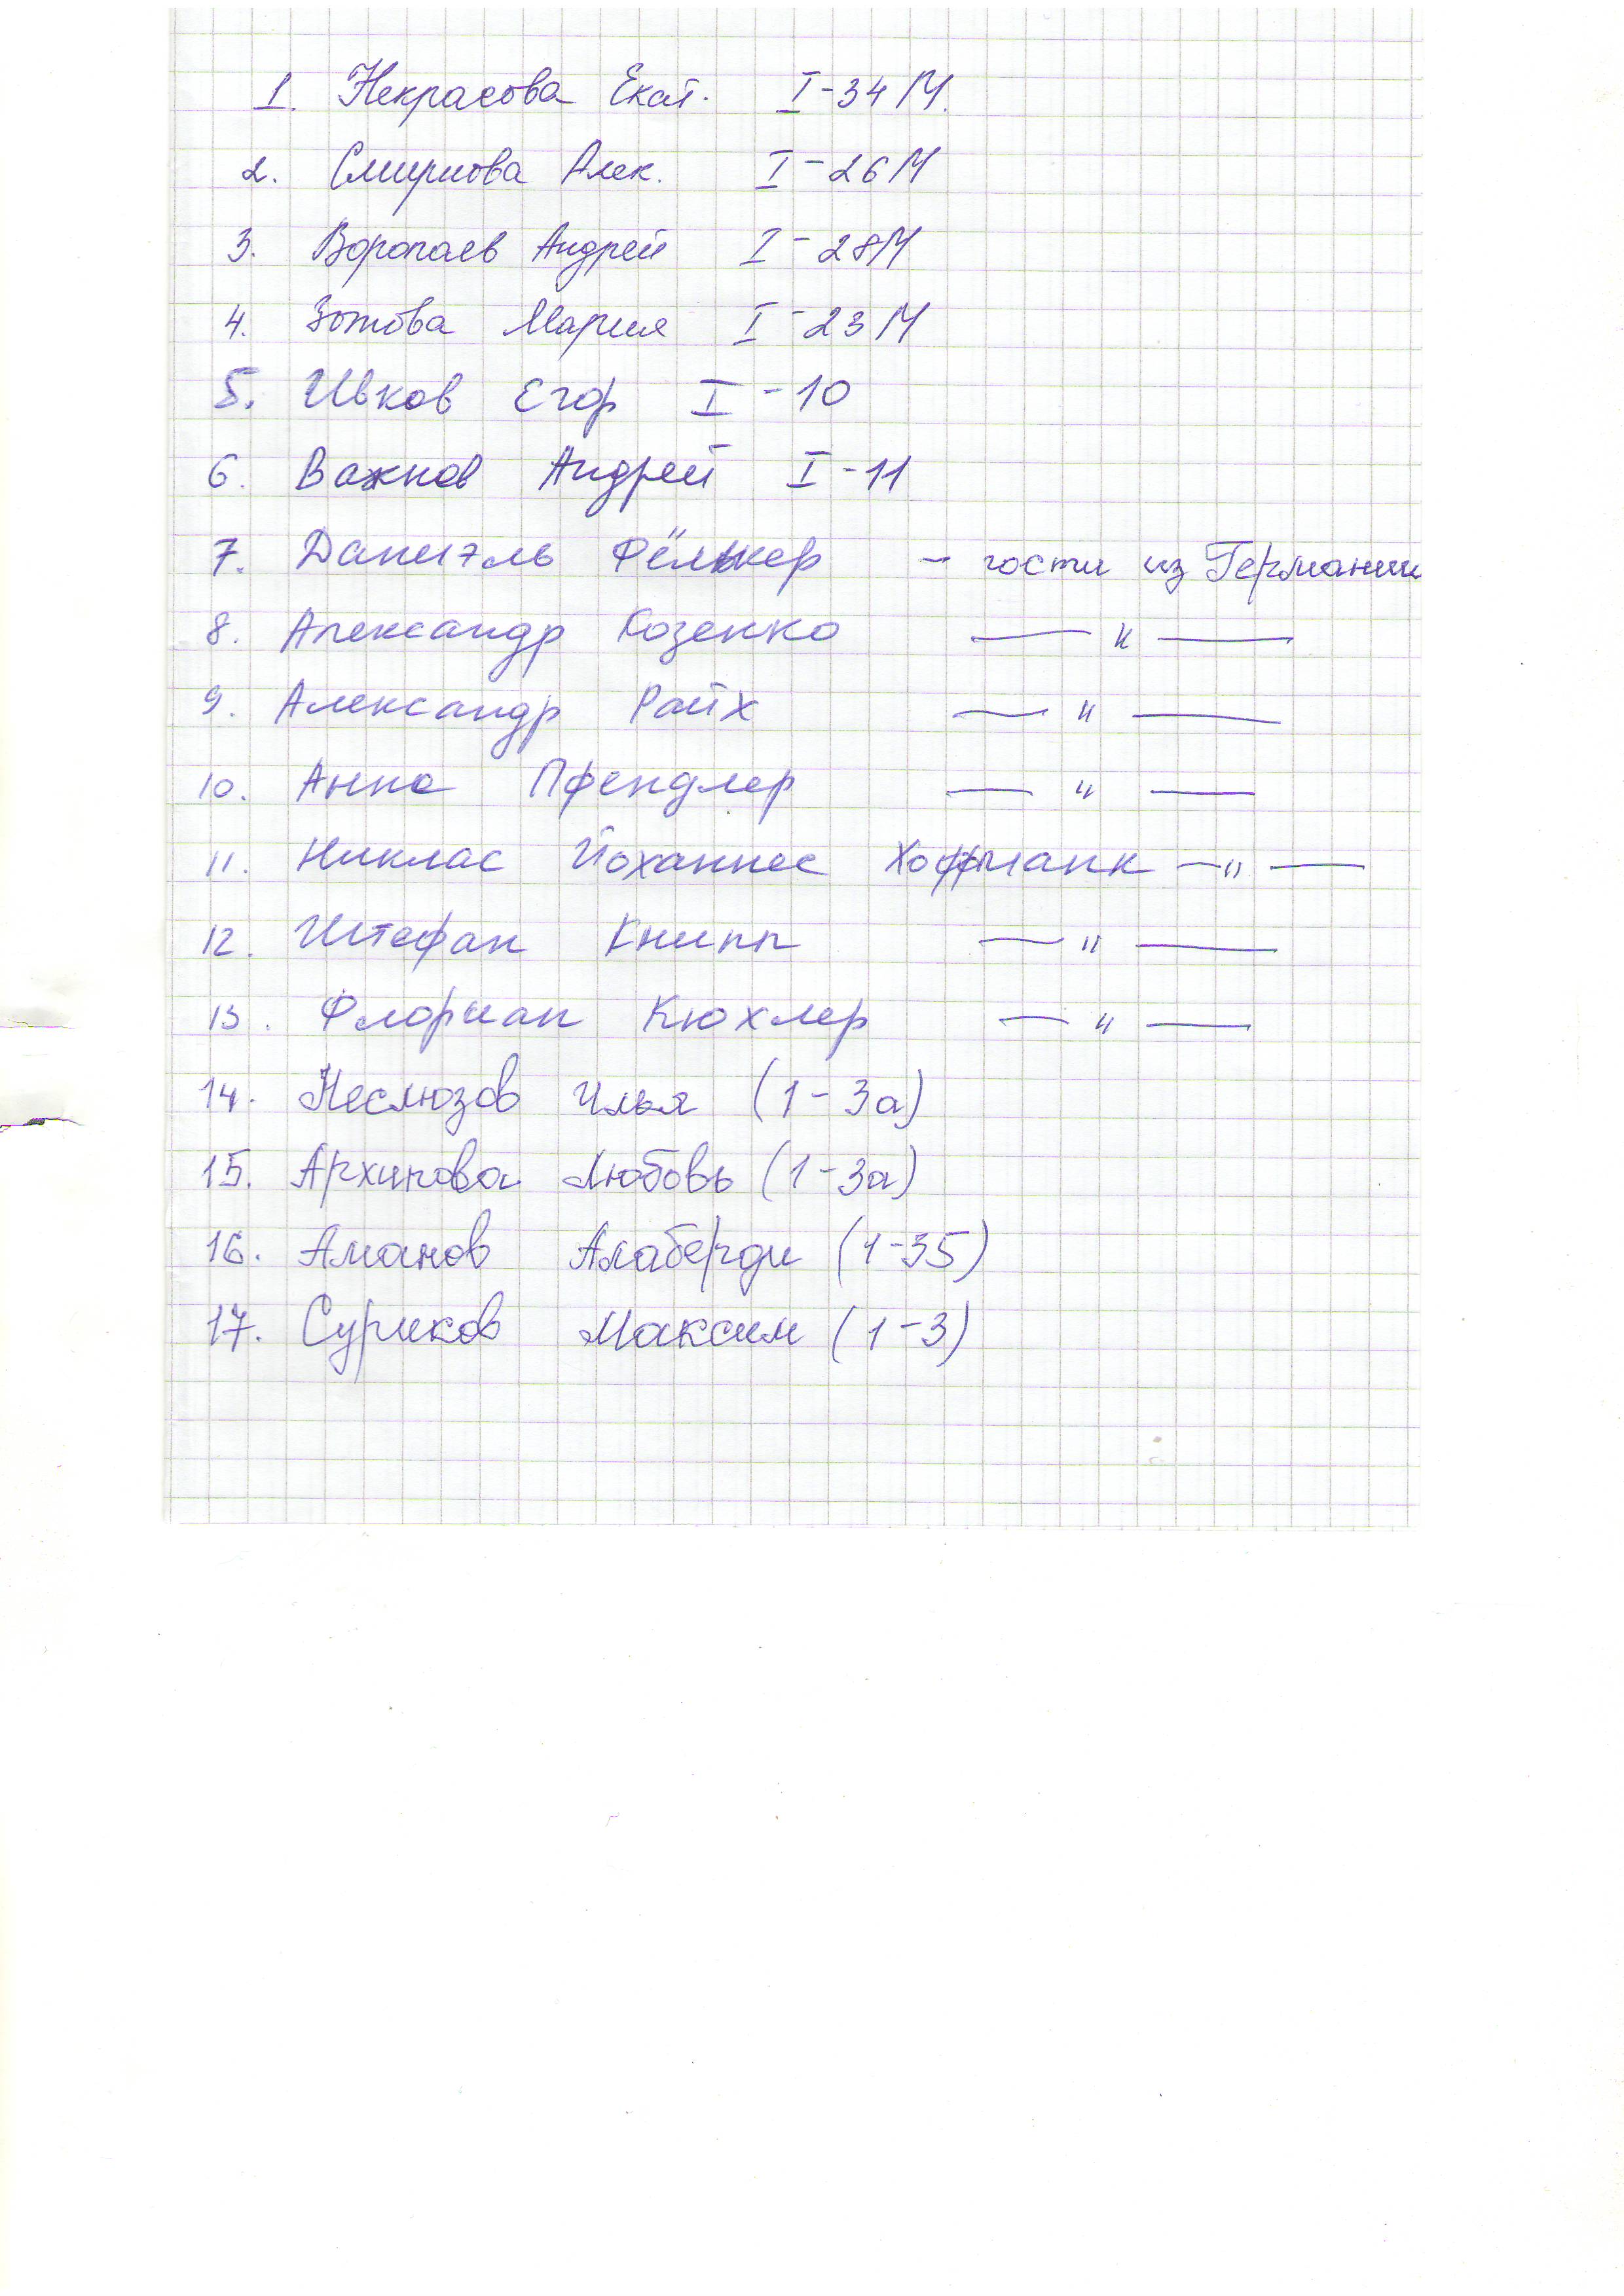 1. Некрасова Екат. I-34М.
2. Смирнова Алек. I-26М
3. Воропаев Андрей I-28М
4. Зотова Мария I-23М
5. Ивков Егор I-10
6. Важнов Андрей I-11
7. Даниэль Фёлькер - гости из Германии
8. Александр Козенко —〃—
9. Александр Райх —〃—
10. Анна Пфендлер —〃—
11. Никлас Йоханнес Хоффманн —〃—
12. Штефан Книпп —〃—
13. Флориан Кюхлер —〃—
14. Неслюзов Илья (1-3а)
15. Архипова Любовь (1-3а)
16. Аманов Алаберди (1-35)
17. Суриков Максим (1-3)